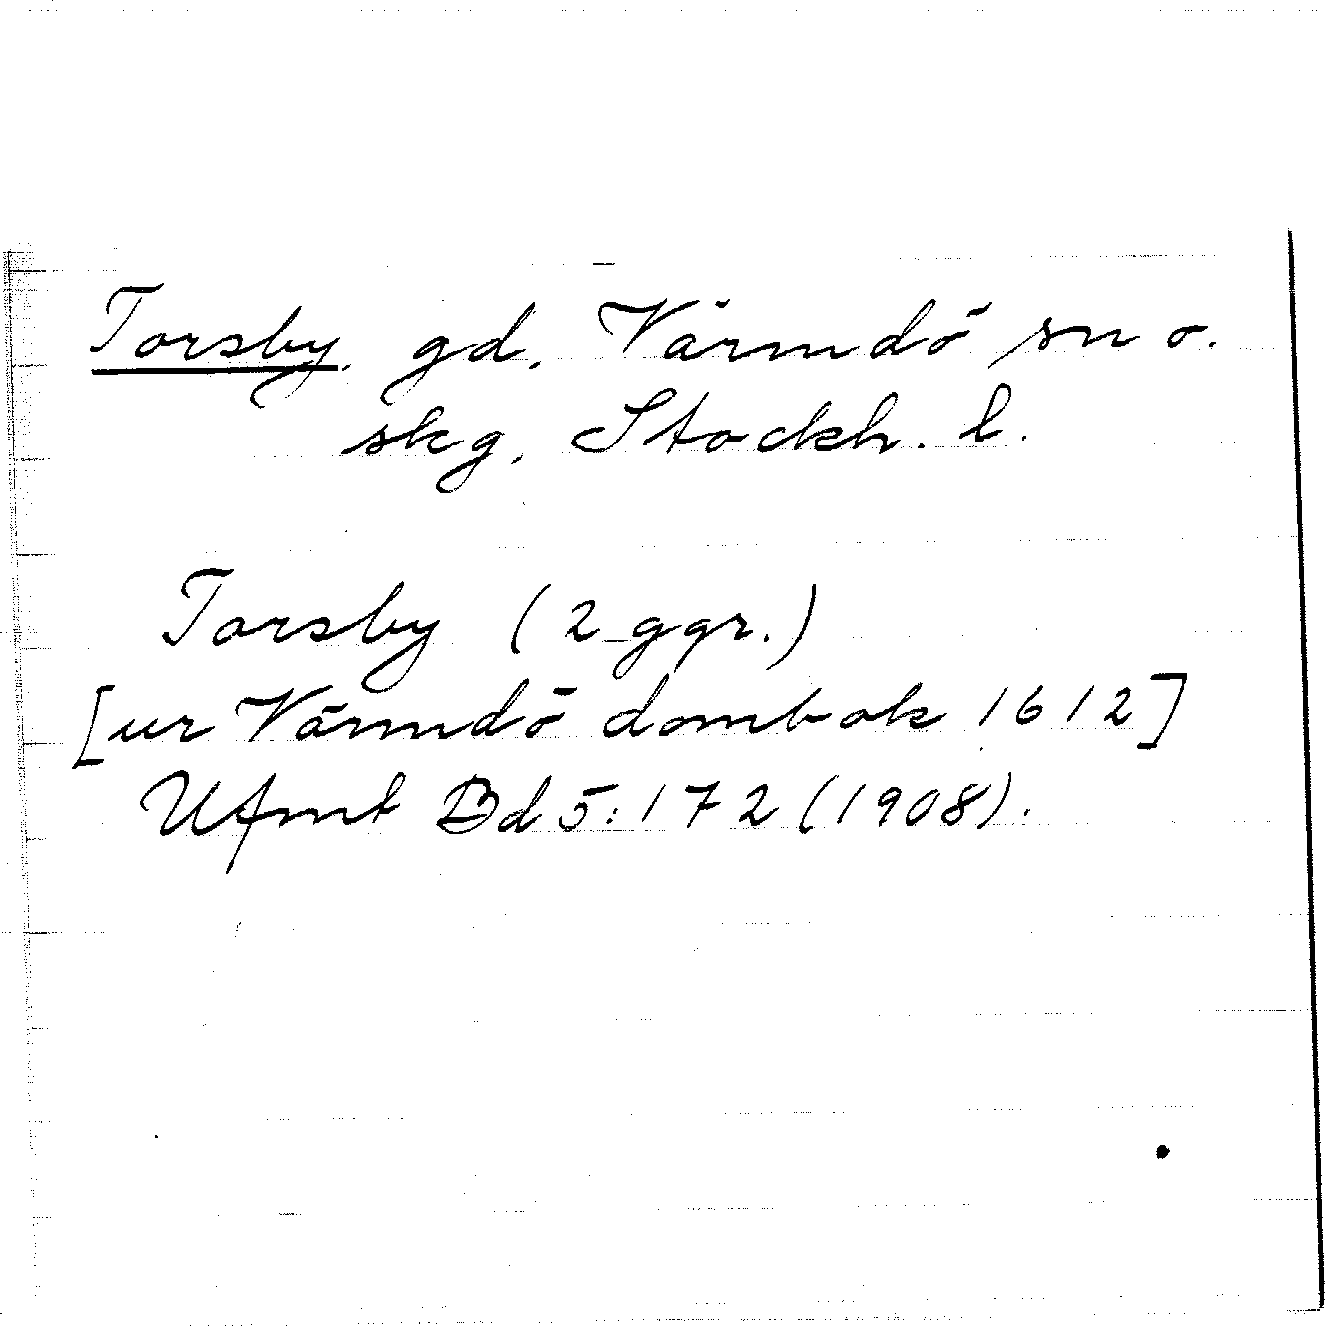 Torsby, gd, Värmdö sn o.
skg, Stockh. l.
Torsby (2 ggr.)
[ur Värmdö dombok 1612]
Ufmt Bd 5:172 (1908).